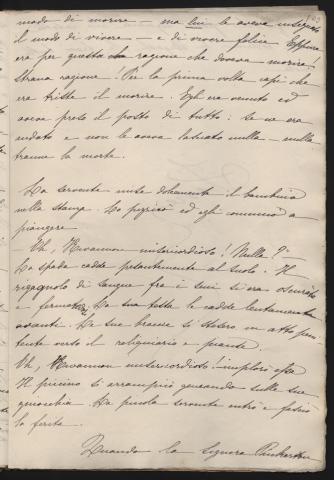 modo di morire – ma lui le aveva insegnato
il modo di vivere – e di vivere felice. Eppure
era per questa ragione che doveva morire!
strana ragione! Per la prima volta capì che
era triste il morire. Egli era venuto ed
aveva preso il posto di tutto: se ne era
andato e non le aveva lasciato nulla – nulla
tranne la morte.
La servente mise dolcemente il bambino
nella stanza. Lo ed egli cominciò a
piangere
– Oh, Kwannon misericordioso! Nulla?"
La spada cadde pesantemente al suolo. Il
rigagnolo di sangue fra i suoi si era oscurato
e fermato. La sua testa le cadde lentamente
avanti. Le sue braccia si stesero in atto peni-
tente verso il reliquiario e piante.
Oh, Kwannon misericordioso! implorò essa
Il piccino si arrampicò sulle sue
ginocchia La servente entrò e fasciò
la ferita.
Quando la Signora Pinkerton